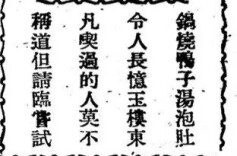 鍋燒鴨子湯泡肚
令人長憶玉樓東
凡喫過的人莫不
稱道但請臨嘗試